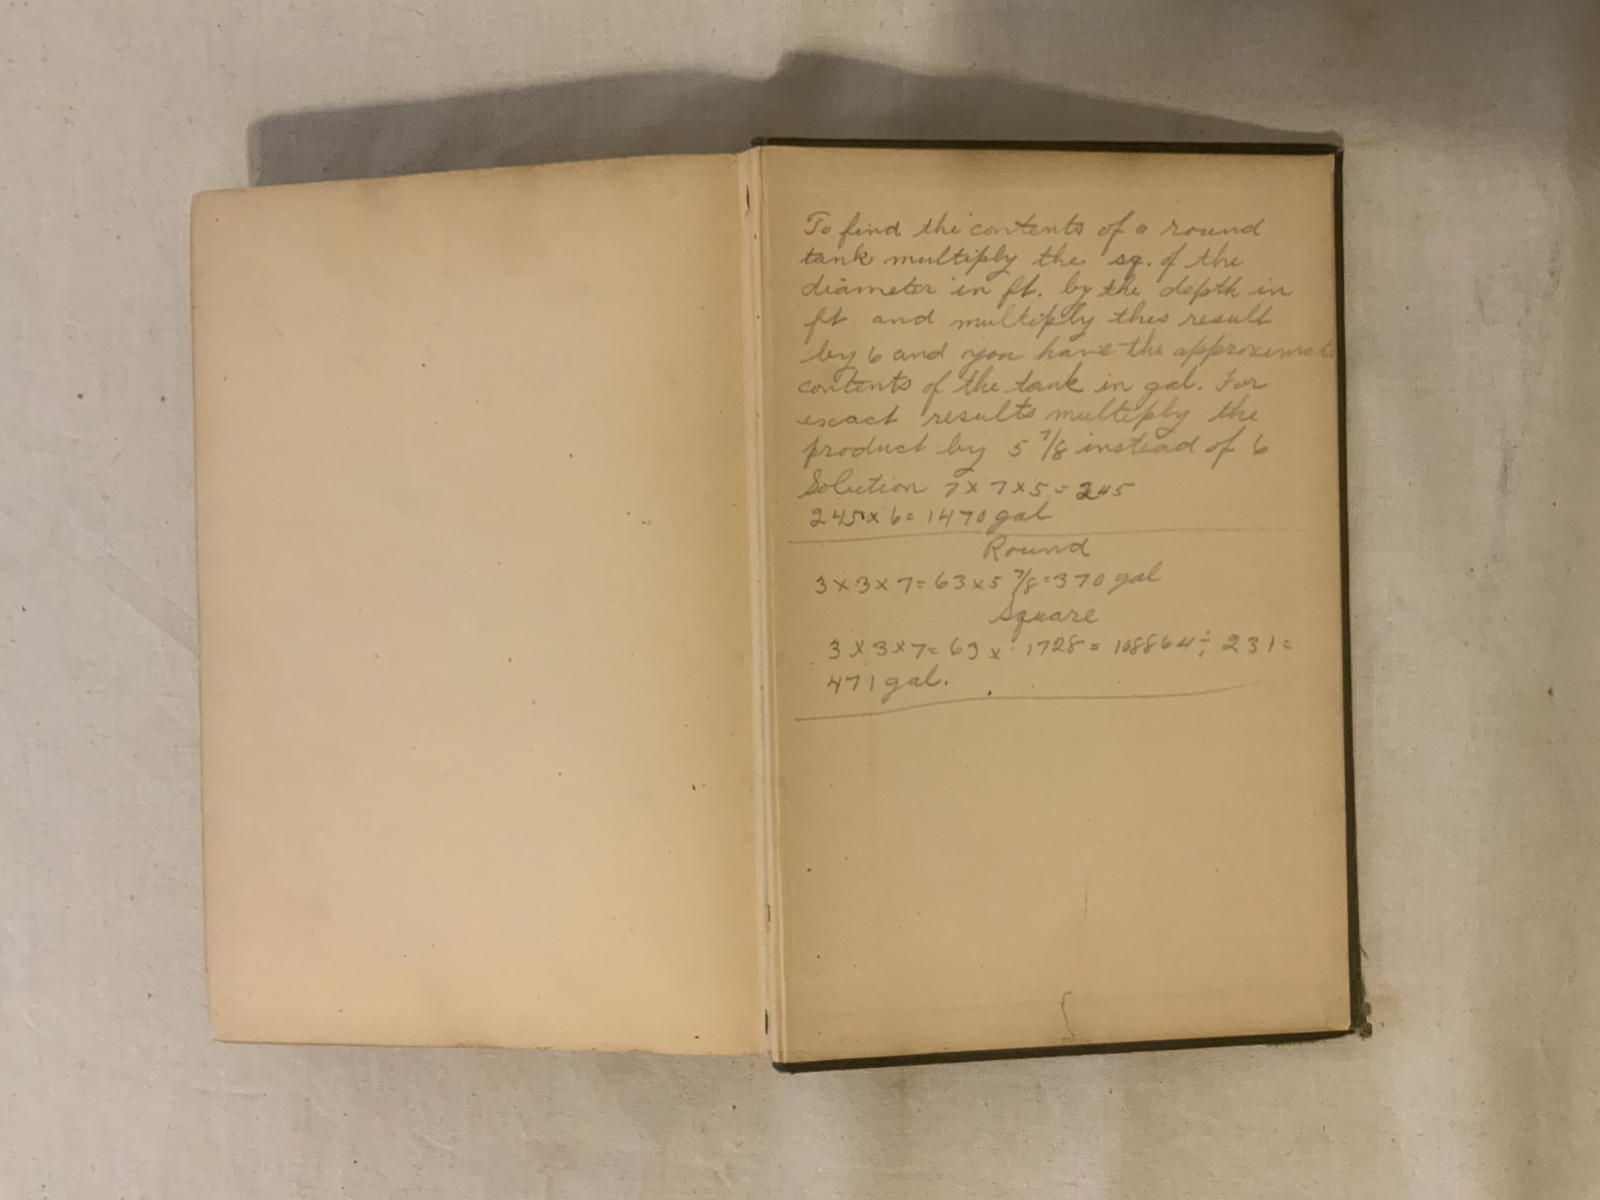 To find the contents of a round
tank multiply the sq. of the
diameter in ft. by the depth in
ft. and multiply this result
by 6 and you have the approximate
contents of the tank in gal. For
exact results multiply the
product by 5 7/8 instead of 6
Solution 7 x 7 x 5 = 245
245 x 6 = 1470 gal
Round
3 x 3 x 7 = 63 x 5 7/8 = 370 gal
Square
3 x 3 x 7 = 63 x 1728 = 108864 ÷ 231 =
471 gal.